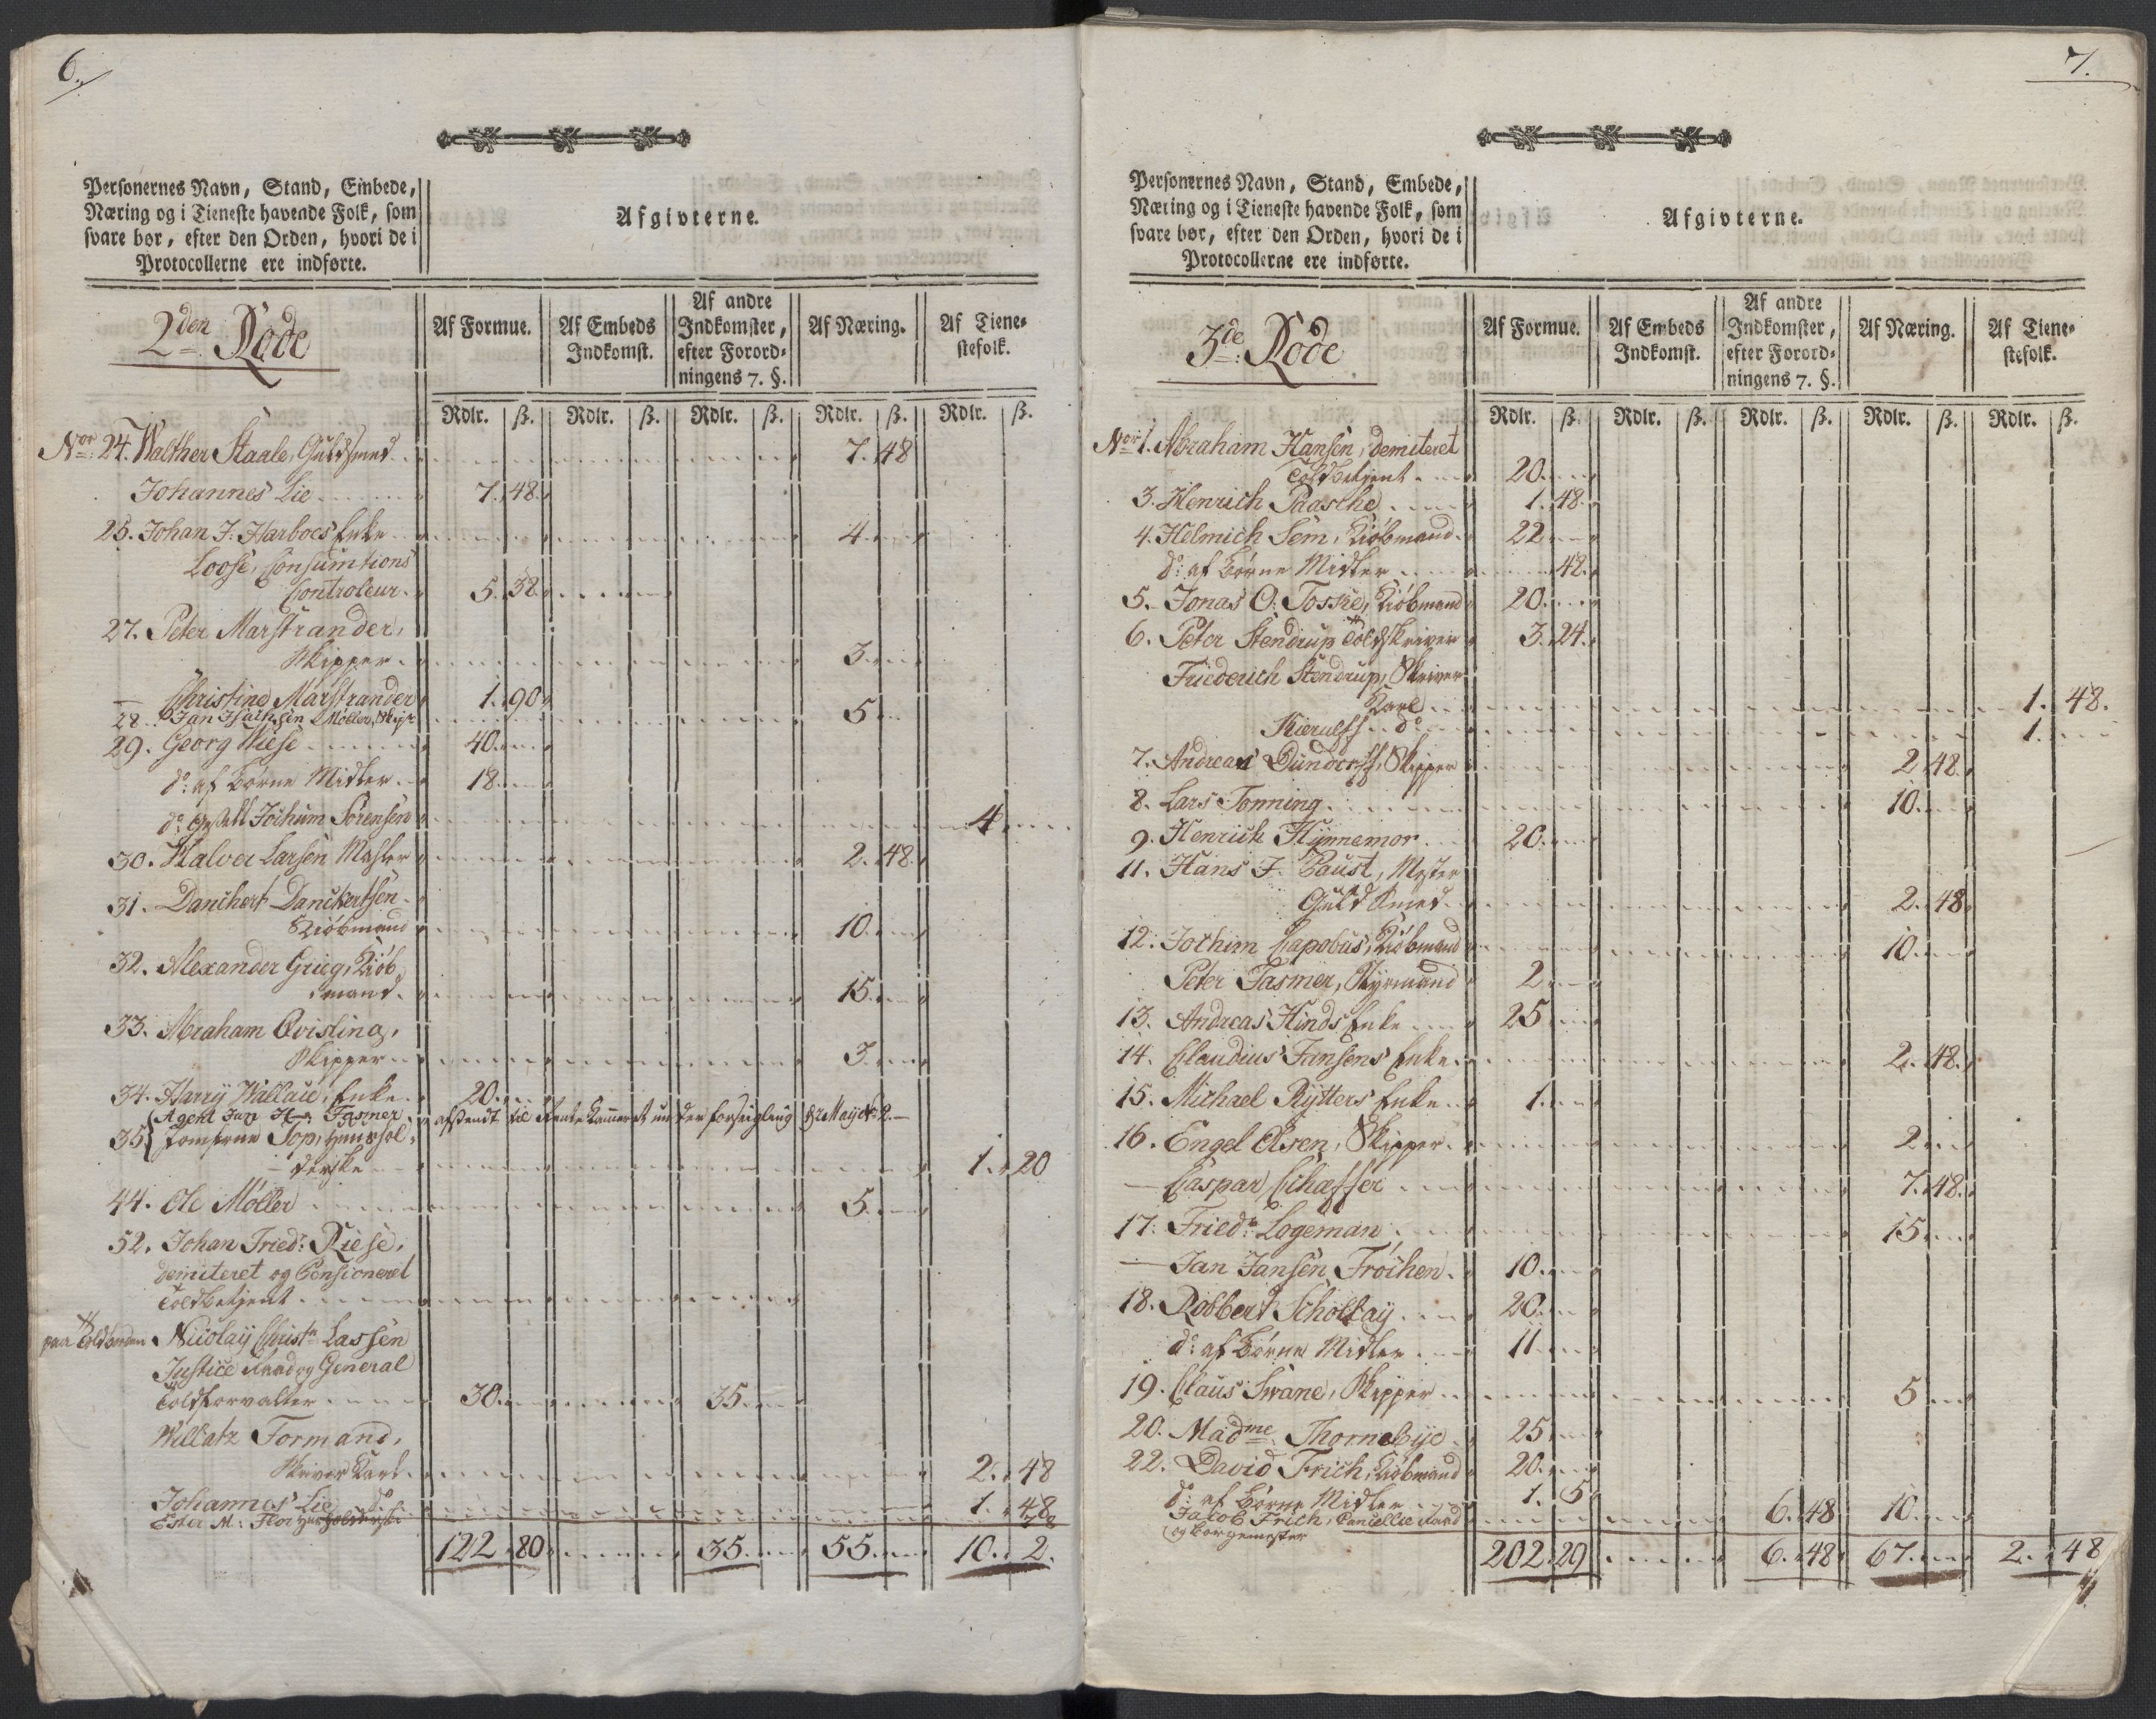 6.
Personernes Navn, Stand, Embede,
Næring og i Tieneste havende Folk, som
svare bør, efter den Orden, hvori de i
Protocollerne ere indførte.
Afgivterne.
2den Rode
Af Formue. Af Embeds Indkomst. Af andre Indkomster, efter Forordningens 7. §. Af Næring. Af Tienestefolk.
Rdlr. ß. Rdlr. ß. Rdlr. ß. Rdlr. ß. Rdlr. ß.
Nor 24. Walther Staale, Guldsmed 7. 48
Johannes Lie 7. 48.
25. Johan J. Harboes Enke 4.
Loose, Consumtions
Controleur. 5. 38.
27. Peter Marstrander,
Skipper. 3.
— Christine Marstrander 1. 90
28. Jan Møller, Skipr 5.
29. Georg Wiese 40.
do: af Børne Midler 18.
do: Jochum Sørensen 4.
30. Halvor Larsen Mægler 2. 48.
31. Danchert Danckertsen
Kiøbmand 10.
32. Alexander Grieg, Kiøb
mand. 15.
33. Abraham Qvisling,
Skipper 3.
34. Harry Wallace, Enke 20.
Agent Jan H. Fasmer, afsendt til Rente Kammeret under forseigling
35. Jomfrue Top, Huushol
derske 1. 20
44. Ole Møller 5.
52. Johan Friedr: Riese,
demiteret og Pensioneret
Toldbetjent
paa Toldboden Nicolaij Christn Lassen
Justice Raad og General
Toldforvalter 30. 35.
Willatz Formand,
Skriver Karl. 2. 48
Johannes Lie do 1. 48
Ester M: Flor Huusholderske 48
122. 80 35. 55. 10. 2.
7.
Personernes Navn, Stand, Embede,
Næring og i Tieneste havende Folk, som
svare bør, efter den Orden, hvori de i
Protocollerne ere indførte.
Afgivterne.
3de: Rode
Af Formue. Af Embeds Indkomst. Af andre Indkomster, efter Forordningens 7. §. Af Næring. Af Tienestefolk.
Rdlr. ß. Rdlr. ß. Rdlr. ß. Rdlr. ß. Rdlr. ß.
Nor 1. Abraham Hansen, demiteret
Toldbetjent 20.
3. Henrich Paasche 1. 48.
4. Helmich Sem, Kiøbmand 22
do: af Børne Midler 48.
5. Jonas O: Toskie, Kiøbmand 20.
6. Peter Stendrup Toldskriver 3. 24.
Friederich Stendrup, Skriver
Karl 1. 48.
Kierulff do 1.
7. Andreas Dundorff, Skipper 2. 48.
8. Lars Tonning 10.
9. Henrich Hynnemor 20.
11. Hans J. Paust, Mester
Guld Smed. 2. 48.
12. Jochim Capobus, Kiøbmand 10.
Peter Fasmer, Styrmand 2
13. Andreas Hinds Enke 25
14. Claudius Jansens Enke. 2. 48.
15. Michael Rytters Enke 1.
16. Engel Olsen, Skipper. 2.
— Caspar Schæffer 7. 48.
17. Friedr: Logeman 15
— Jan Jansen Frøchen. 10.
18. Robbert Scholtay 20.
do: af Børne Midler 11
19. Claus Swane, Skipper 5
20. Madme Thornebye 25
22. David Frich, Kiøbmand 20.
do: af Børne Midler 1. 5
Jacob Frich, Cancellie Raad 6. 48 10.
og Borgemester
202. 29 6. 48 67. 2. 48